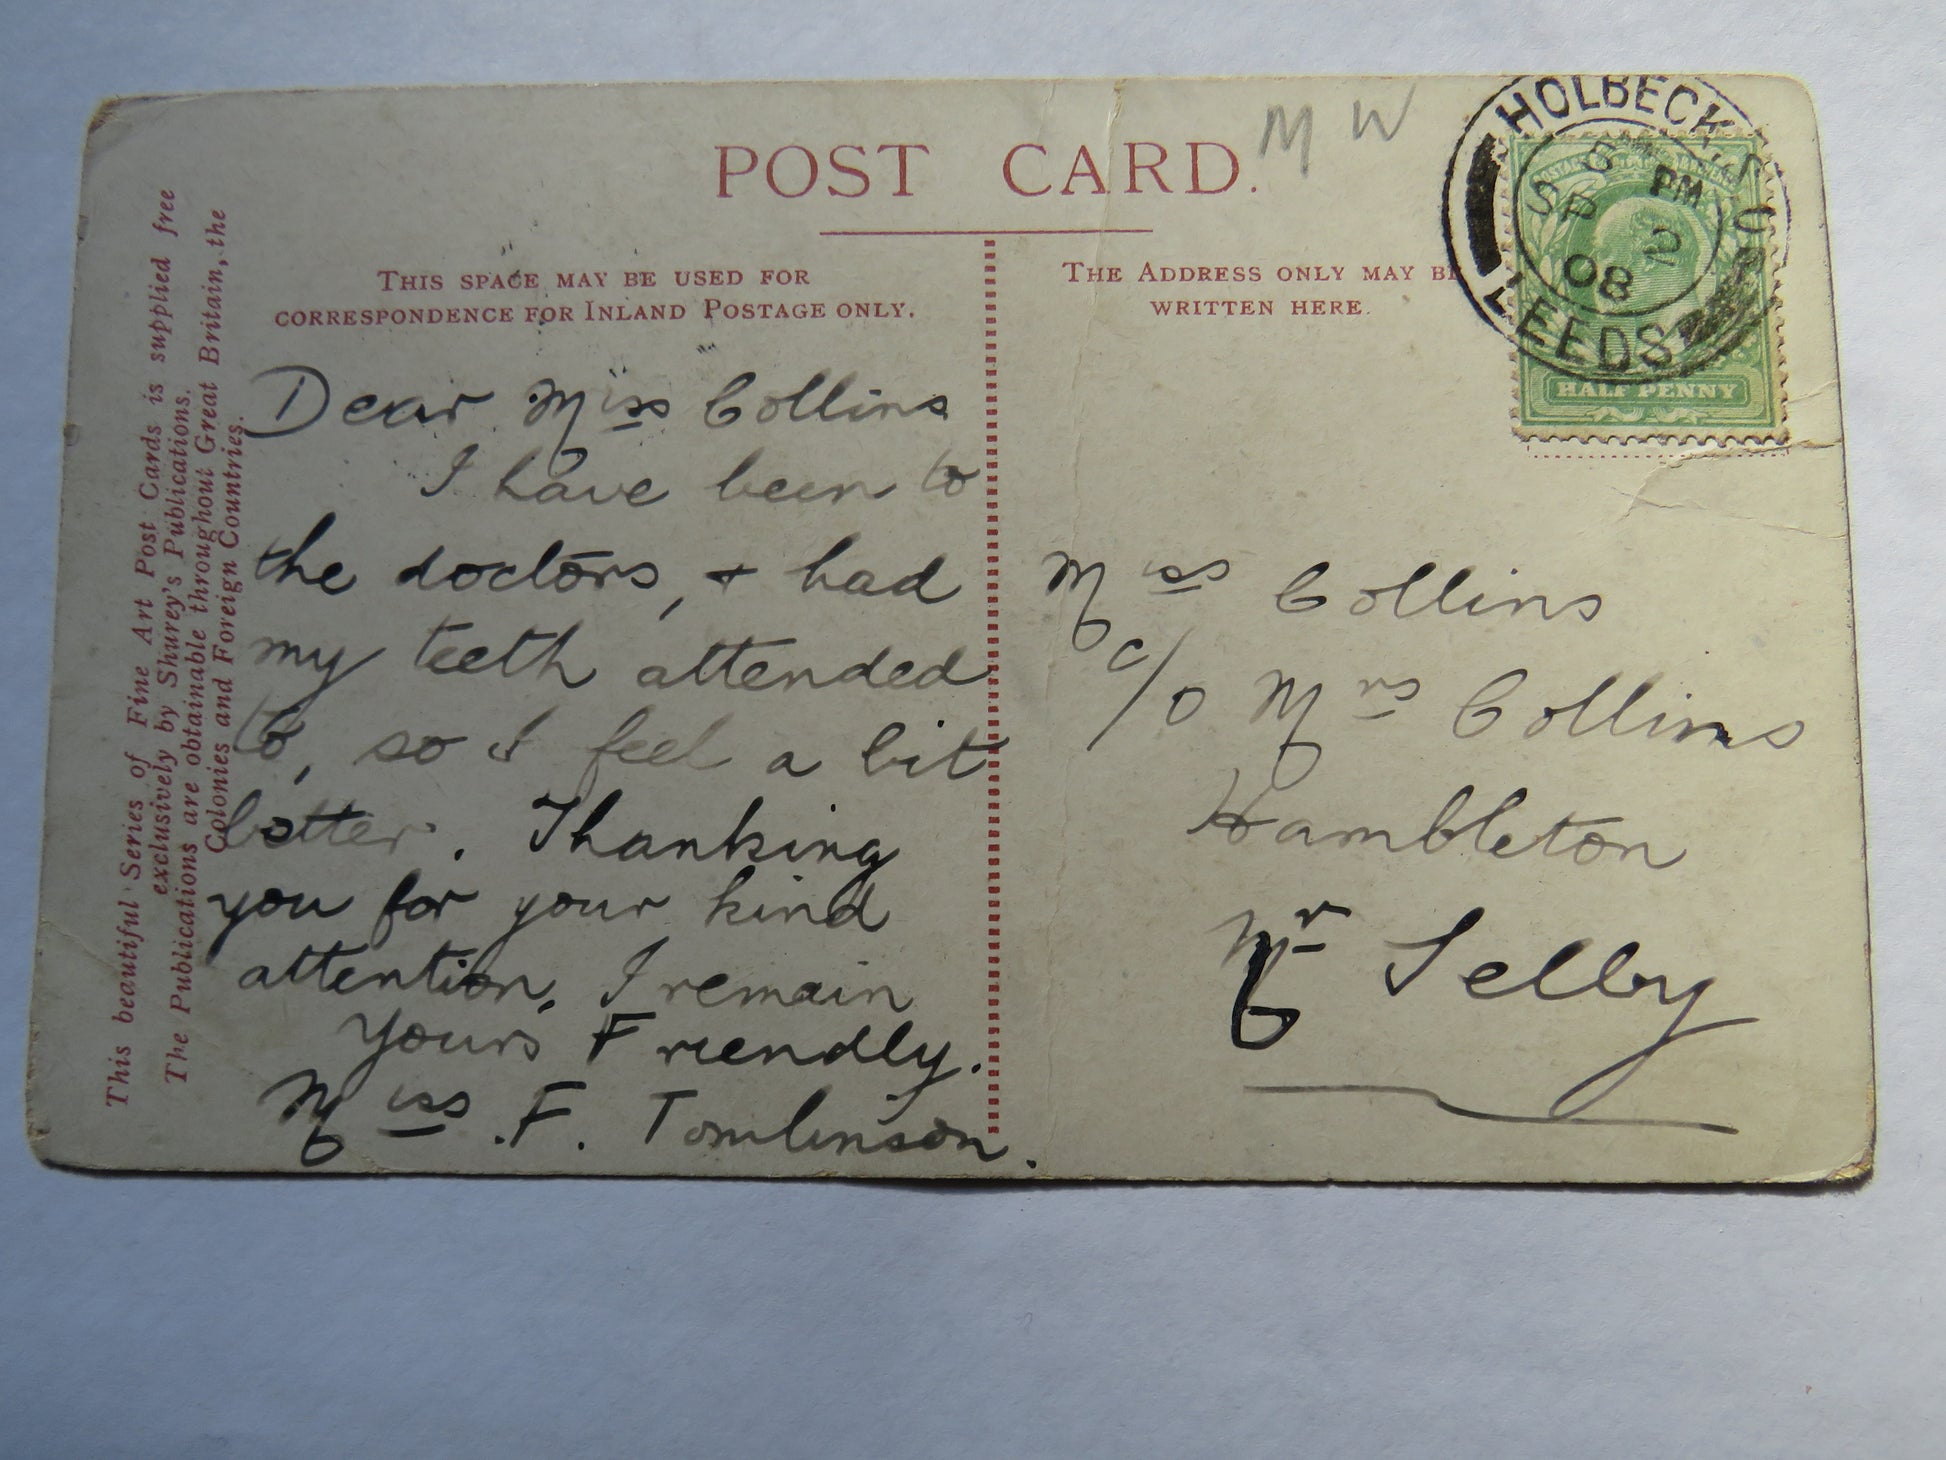 POST CARD.
M W
HOLBECK S.O.
8 PM
SP 2
08
LEEDS
HALF PENNY
This beautiful Series of Fine Art Post Cards is supplied free
exclusively by Shurey's Publications.
The Publications are obtainable throughout Great Britain, the
Colonies and Foreign Countries.
THIS SPACE MAY BE USED FOR
CORRESPONDENCE FOR INLAND POSTAGE ONLY.
Dear Miss Collins
I have been to
the doctors, + had
my teeth attended
to, so I feel a bit
better. Thanking
you for your kind
attention, I remain
Yours Friendly.
Miss F. Tomlinson.
THE ADDRESS ONLY MAY BE
WRITTEN HERE.
Miss Collins
c/o Mrs Collins
Hambleton
Nr Selby